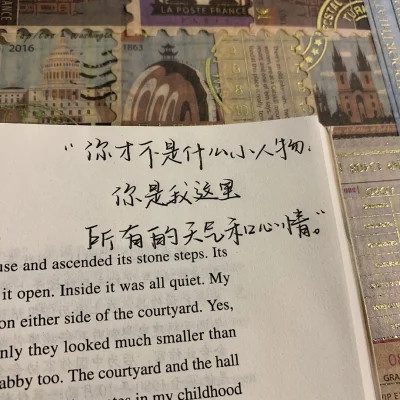 LA POSTE FRANCE
2016
1863
"你才不是什么小人物,
你是我这里
所有的天气和心情。"
use and ascended its stone steps. Its
it open. Inside it was all quiet. My
on either side of the courtyard. Yes,
nly they looked much smaller than
abby too. The courtyard and the hall
in my childhood